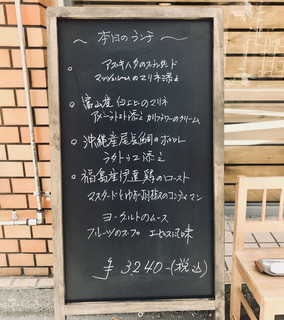 ～ 本日のランチ ～
。アスキハタのスラサード
マッシュルームのマリネ添え
。富山産 白エビのマリネ
アメーラトマト添え カリフラワーのクリーム
。沖縄産尾長鯛のポワレ
ラタトゥユ添え
。福島産伊達鶏のロースト
マスタードとゆず胡椒のコンディマン
ヨーグルトのムース
フルーツのスープ エピス風味
¥3240-(税込)